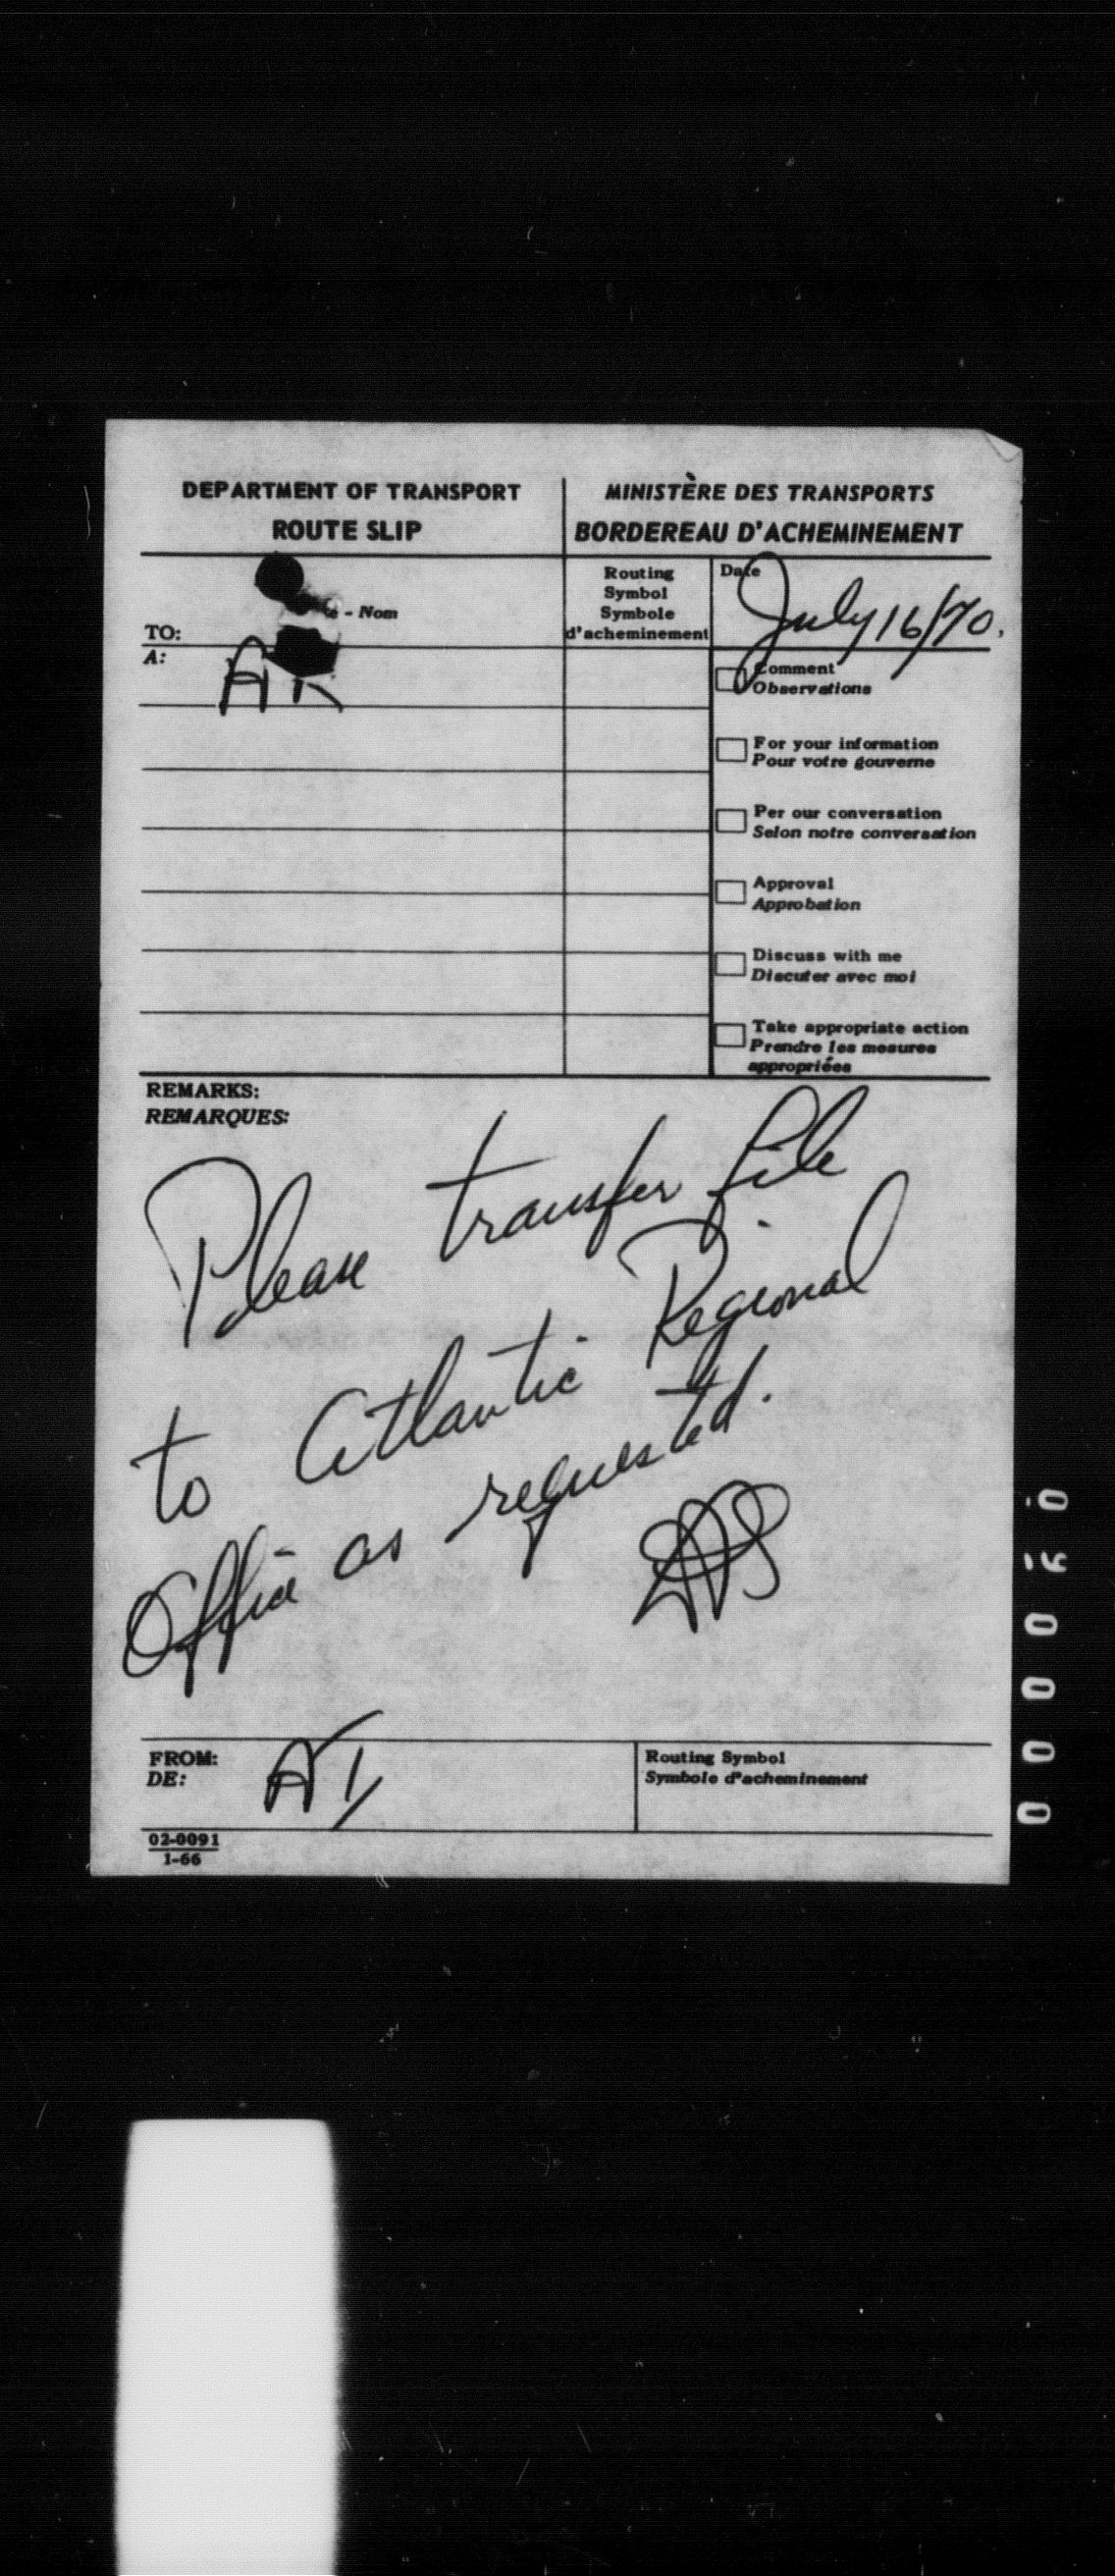 DEPARTMENT OF TRANSPORT
ROUTE SLIP
MINISTÈRE DES TRANSPORTS
BORDEREAU D'ACHEMINEMENT
- Nom
TO:
A:
Routing
Symbol
Symbole
d'acheminement
Date
July 16/70.
Comment
Observations
For your information
Pour votre gouverne
Per our conversation
Selon notre conversation
Approval
Approbation
Discuss with me
Discuter avec moi
Take appropriate action
Prendre les mesures
appropriées
REMARKS:
REMARQUES:
Please transfer file
to Atlantic Regional
Office as requested.
FROM:
DE:
Routing Symbol
Symbole d'acheminement
02-0091
1-66
000060